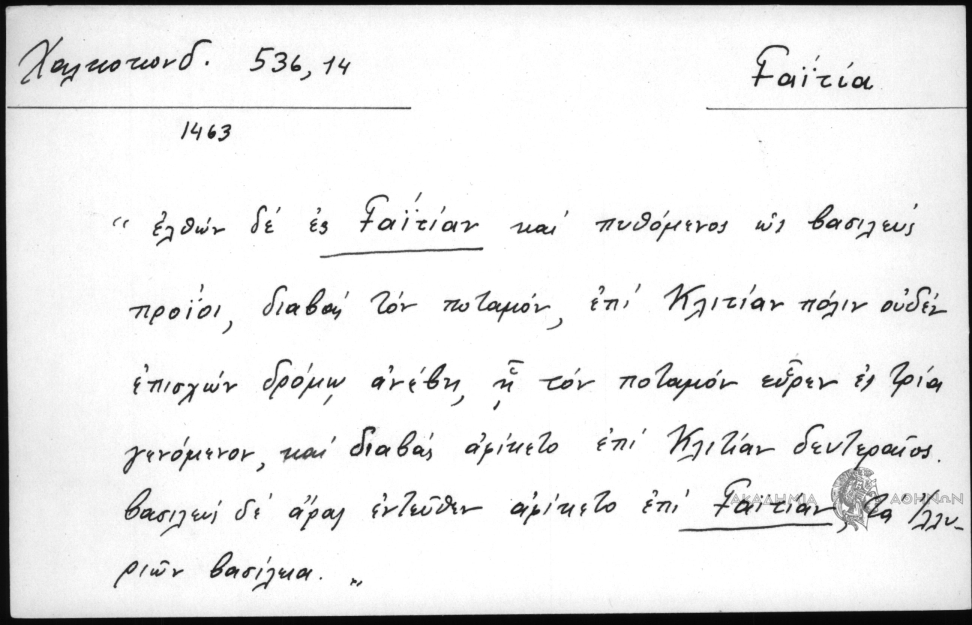 Χαλκοκονδ. 536,14
Γαϊτία
1463
" ἐλθών δέ ἐς Γαϊτίαν καί πυθόμενος ὡς βασιλεύς
προΐοι, διαβάς τόν ποταμόν, ἐπί Κλιτίαν πόλιν οὐδέν
ἐπισχών δρόμῳ ἀνέβη, ᾗ τόν ποταμόν εὗρεν ἐς τρία
γενόμενον, καί διαβάς ἀφίκετο ἐπί Κλιτίαν δευτεραῖος.
βασιλεύς δέ ἄρας ἐντεῦθεν ἀφίκετο ἐπί Γαϊτίαν, τα Ἰλλυ-
ριῶν βασίλεια. „
ΑΚΑΔΗΜΙΑ ΑΘΗΝΩΝ